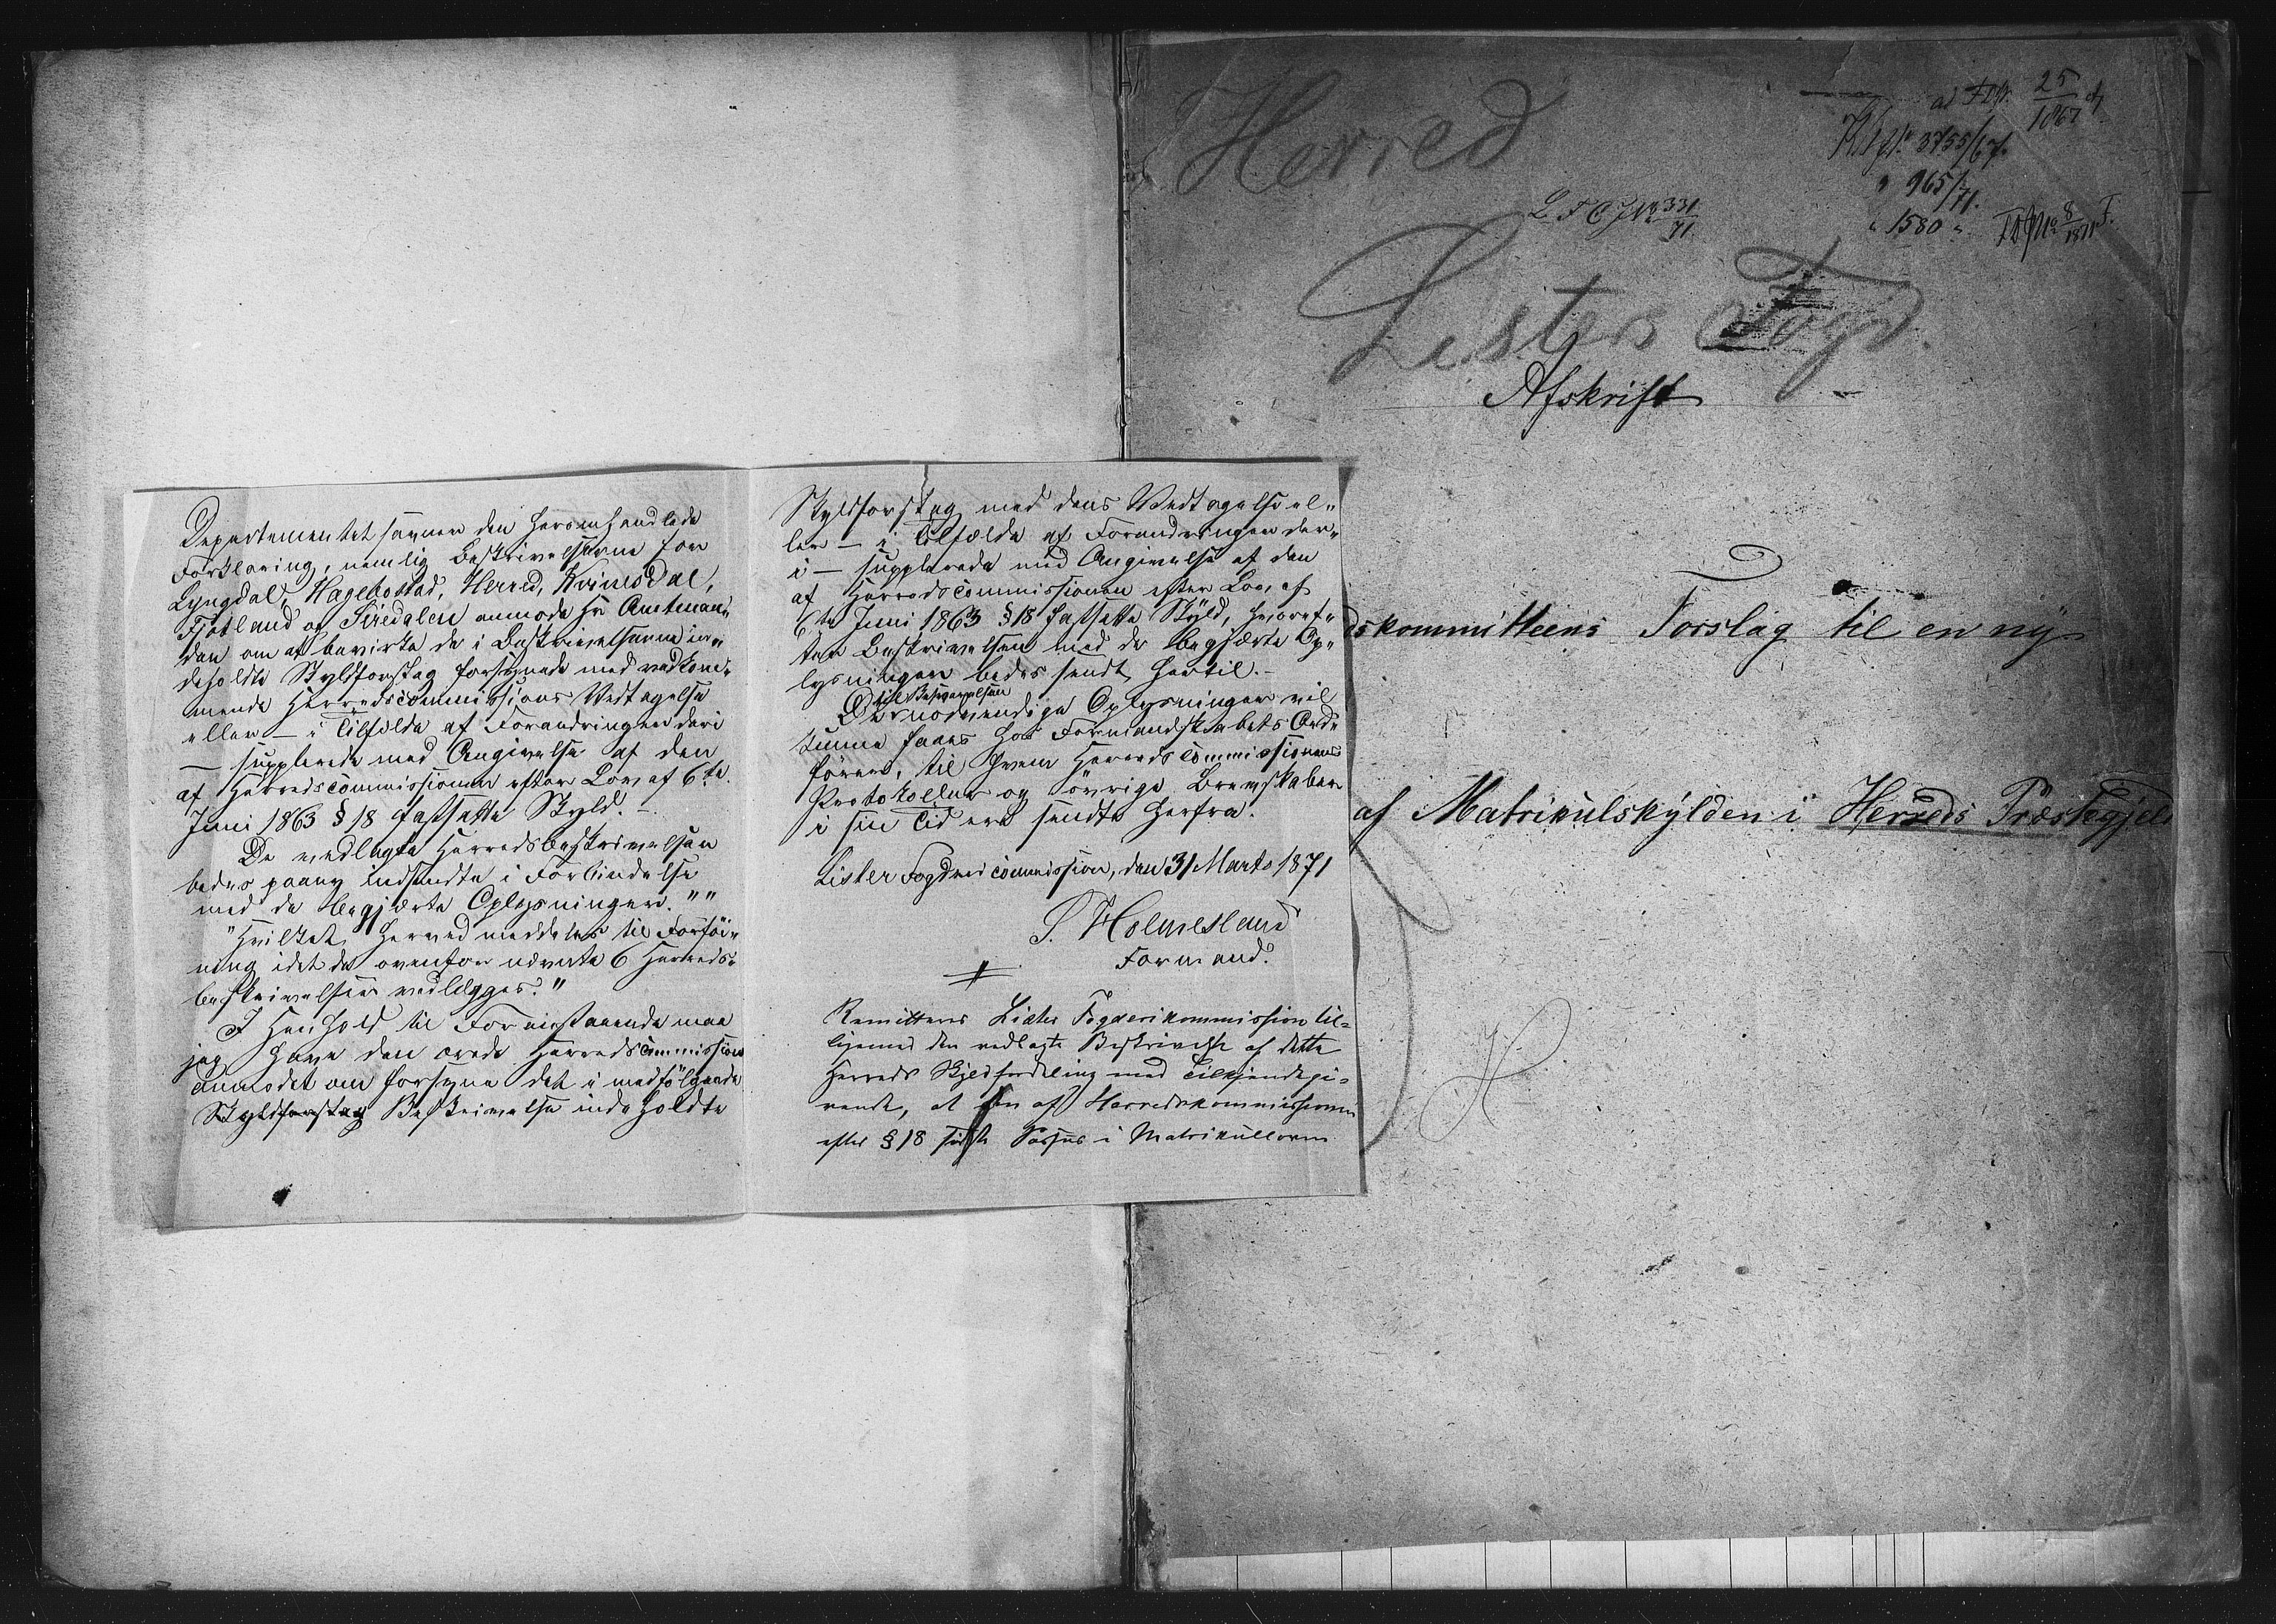 Departementet savner den herom handlede
Forklaring, nemlig Beskrivelserne for
Lyngdal, Hagebostad, Herred, Kvinesdal,
Fjotland og Siredalen anmode Hr Amtman-
den om at bevirke de i Beskrivelserne in-
deholdte Skyldforslag forsynede med vedkom-
mende Herredscommissions Vedtagelse
eller – i Tilfælde af Forandringer deri
– supplerede med Angivelse af den
af Herredscommissionen efter Lov af 6te
Juni 1863 § 18 fastsatte Skyld. –
De vedlagte Herredsbeskrivelser
bedes paany indsendte i Forbindelse
med de begjærte Oplysninger.""
"Hvilket herved meddeles til Forføi-
ning idet de ovenfor nævnte 6 Herreds-
beskrivelser vedlægges."
I Henhold til Foranstaaende maa
jeg have den ærede Herredscommission
anmodet om forsyne det i medfølgende
Skyldforslag Beskrivelse indeholdte
Skyldforslag med dens Vedtagelse el-
ler – i Tilfælde af Forandringer der-
i – supplerede med Angivelse af den
af Herredscommissionen efter Lov af
6te Juni 1863 § 18 fastsatte Skyld, hvoref-
ter Beskrivelsen med de begjærte Op-
lysninger bedes sendt hertil. –
til Besvarelsen
De nødvendige Oplysninger vil
kunne faaes hos Formandskabets Ord-
fører, til hvem Herredscommissionens
Protokoller og øvrige Brevskaber
i sin Tid ere sendte herfra.
Lister Fogdericommission, den 31 Marts 1871
S. Holmesland
Formand.
Remitteres Lister Fogderikommission til-
ligemed den vedlagte Beskrivelse af dette
Herreds Skyldfordeling med Tilkjendegi-
vende, at den af Herredskommissionen
efter § 18 første Passus i Matrikulloven
Herred
ad FDJr. 25/1867
No 3755/67.
" 965/71.
" 1580 "
L F C J No 331/71
8/1871 F.
Listers Fogd.
Afskrift
dskommitteens Forslag til en ny
af Matrikulskylden i Herreds Præstegjeld